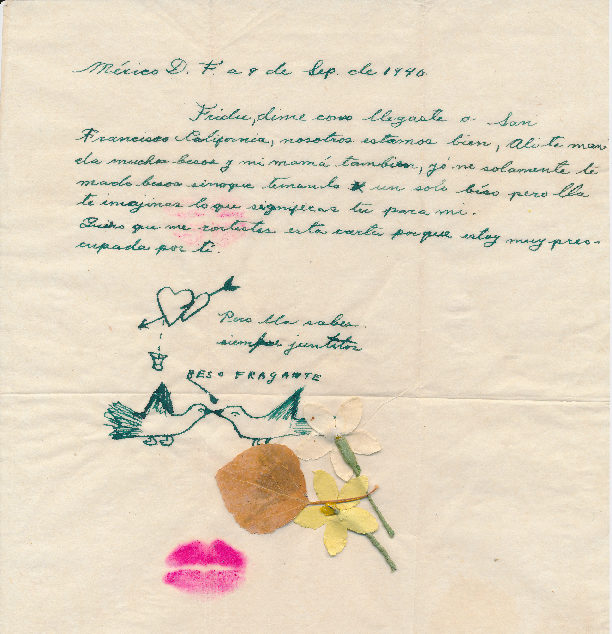 México D. F. a 9 de Sep. de 1940
Fridu, dime como llegaste a San
Francisco California, nosotros estamos bien, Ali te man
da muchos besos y mi mamá tambien, yó ne solamente te
mado besos sinoque temando un solo béso pero lla
te imajinas lo que segnificas tu para mi.
Quiero que me contestes esta carta porque estoy muy preo-
cupada por tí.
Pero lla sabes
siempre juntitos
BESO FRAGANTE